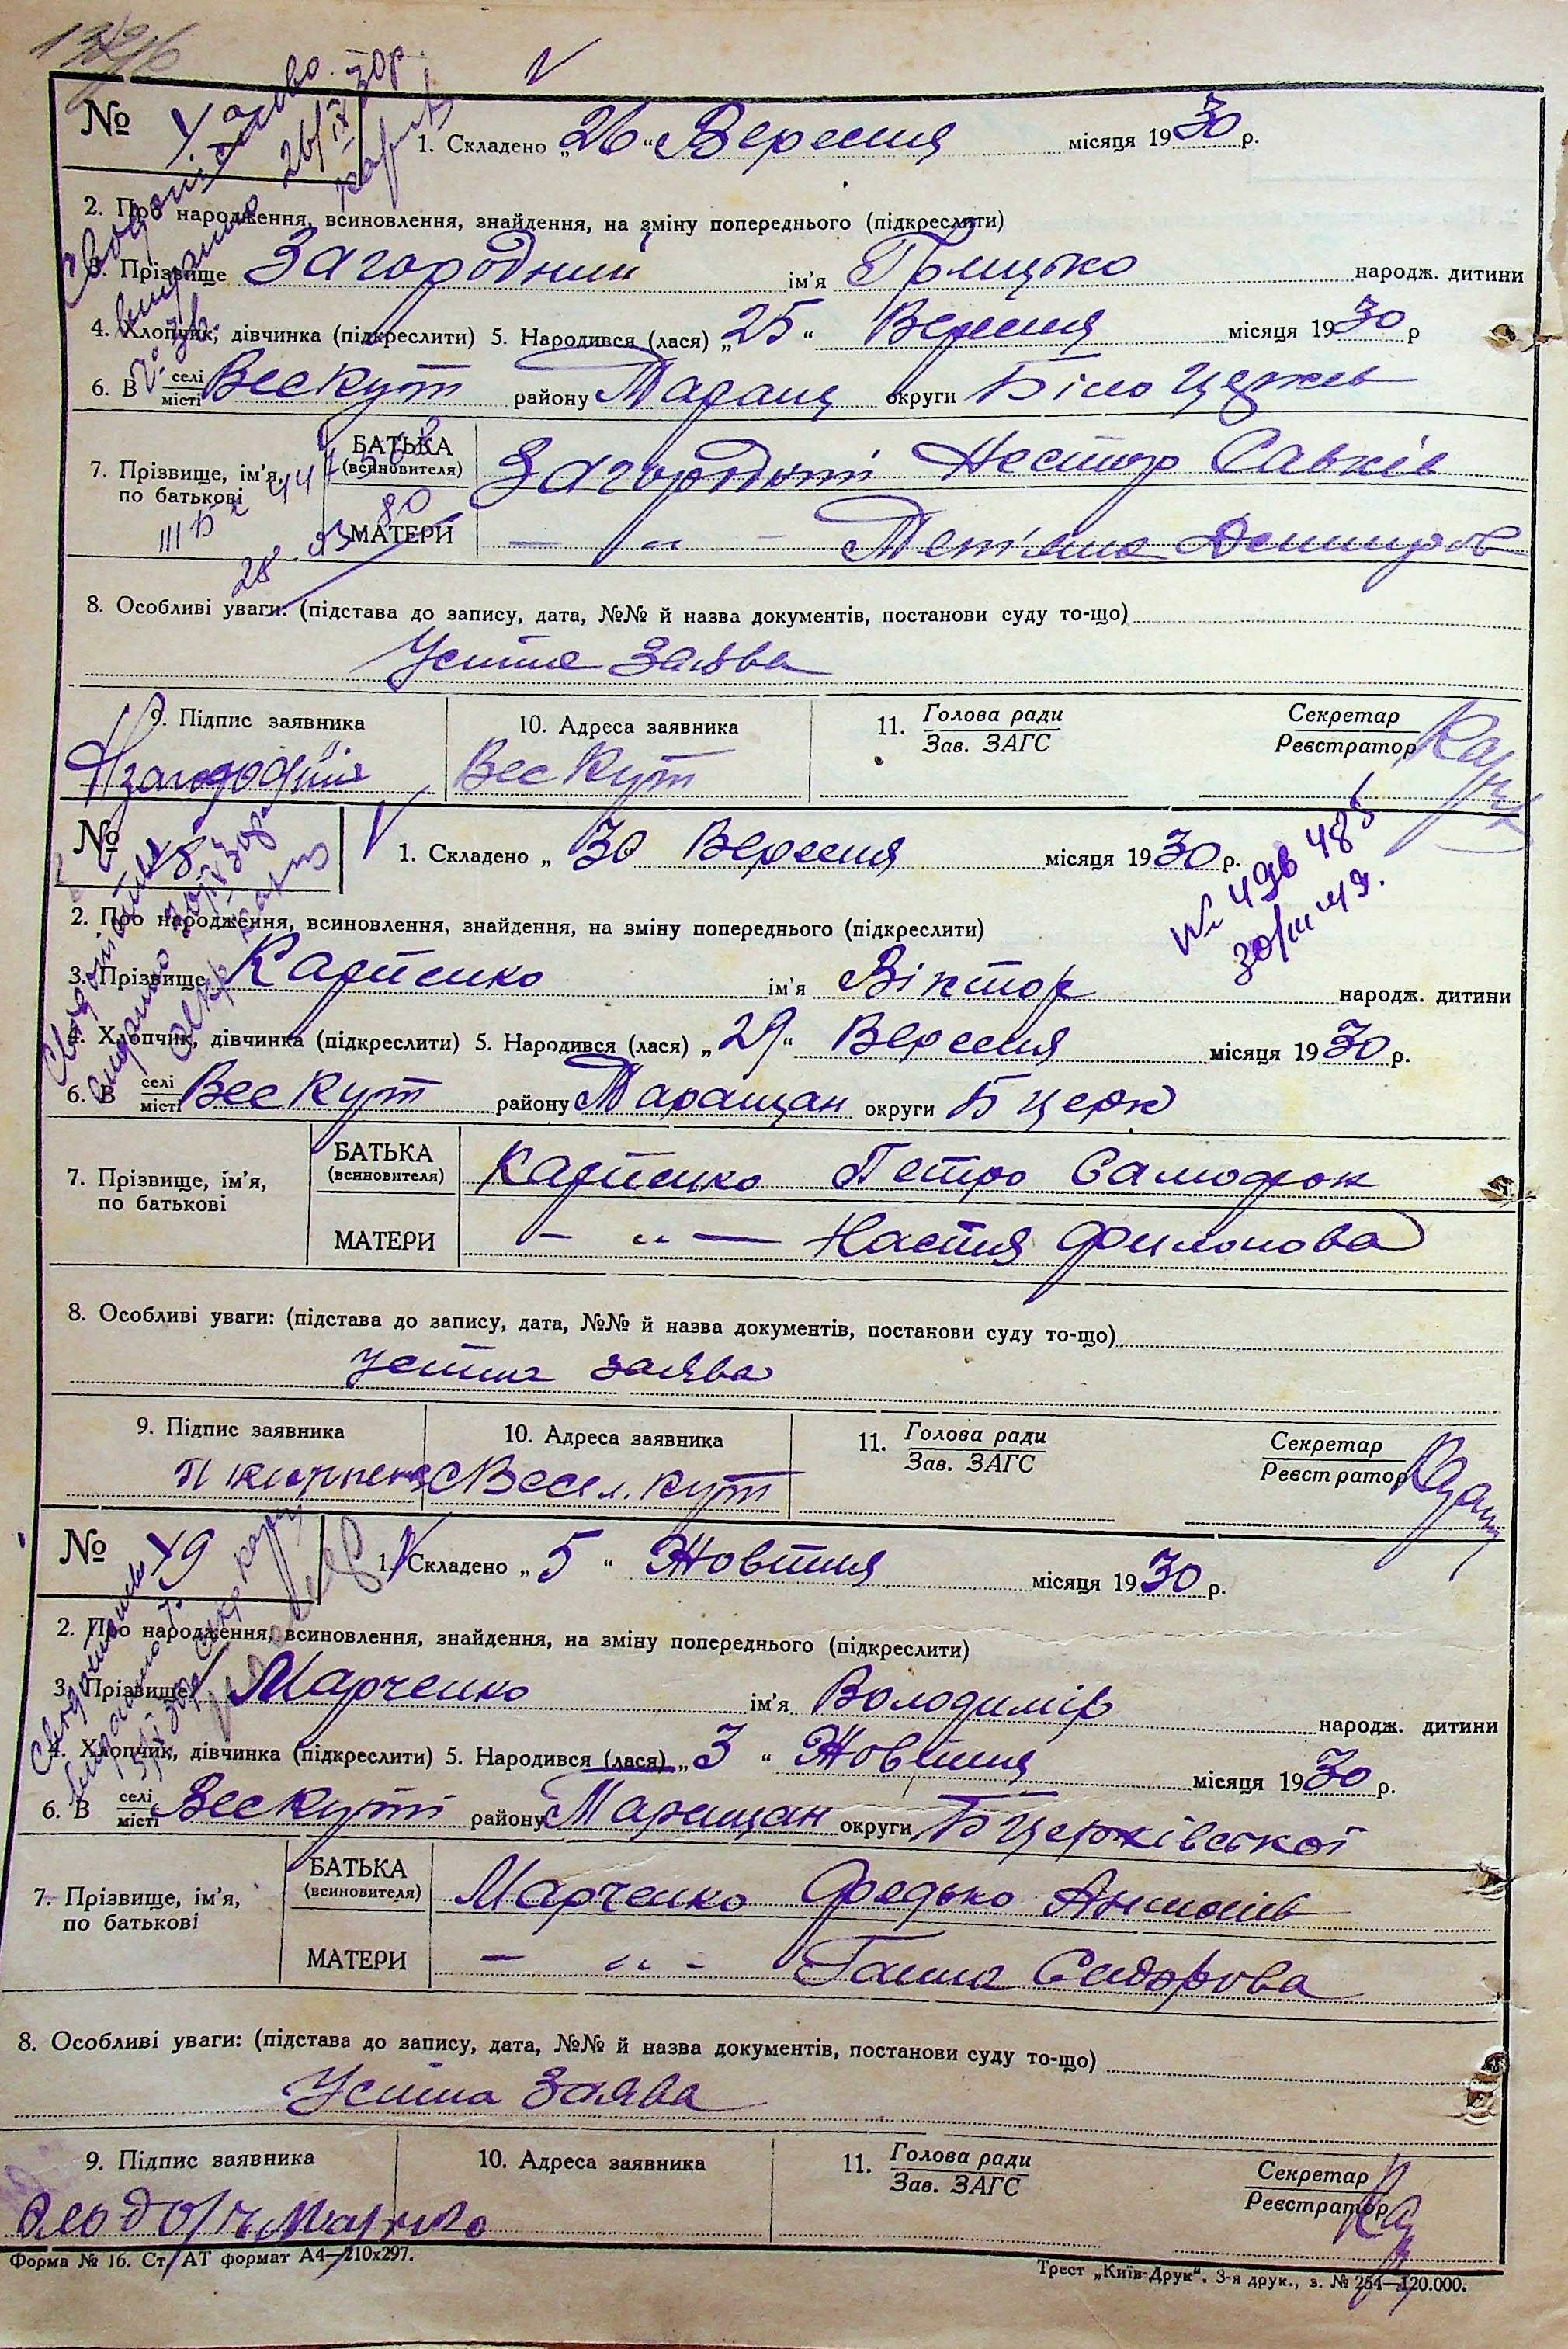 №
1. Складено „26“ Вересня місяця 1930 р.
2. Про народження, всиновлення, знайдення, на зміну попереднього (підкреслити)
3. Прізвище Загородний ім'я Грицько народж. дитини
4. Хлопчик, дівчинка (підкреслити) 5. Народився (лася) „25“ Вересня місяця 1930 р
6. В селі/місті Вескут району Таращ округи Біло Церков
7. Прізвище, ім'я, по батькові
БАТЬКА (всиновителя) Загородній Нестор Савків
МАТЕРИ — „ — Тетяна
8. Особливі уваги: (підстава до запису, дата, №№ й назва документів, постанови суду то-що)
Устна Заява
9. Підпис заявника 10. Адреса заявника 11. Голова ради/Зав. ЗАГС Секретар/Реєстратор
Вес Кут
№ 48
1. Складено „30 Вересня місяця 1930 р.
2. Про народження, всиновлення, знайдення, на зміну попереднього (підкреслити)
3. Прізвище Карпенко ім'я Віктор народж. дитини
4. Хлопчик, дівчинка (підкреслити) 5. Народився (лася) „29“ Вересня місяця 1930 р.
6. В селі/місті Вес Кут району Таращан округи Б Церк
7. Прізвище, ім'я, по батькові
БАТЬКА (всиновителя) Карпенко Петро Самофок
МАТЕРИ — „ — Настя Филонова
8. Особливі уваги: (підстава до запису, дата, №№ й назва документів, постанови суду то-що)
устна заява
9. Підпис заявника 10. Адреса заявника 11. Голова ради/Зав. ЗАГС Секретар/Реєстратор
Весел. Кут
№ 49
1. Складено „5“ Жовтня місяця 1930 р.
2. Про народження, всиновлення, знайдення, на зміну попереднього (підкреслити)
3. Прізвище Марченко ім'я Володимір народж. дитини
4. Хлопчик, дівчинка (підкреслити) 5. Народився (лася) „3“ Жовтня місяця 1930 р.
6. В селі/місті Вес Куті району Таращан округи Б Церківської
7. Прізвище, ім'я, по батькові
БАТЬКА (всиновителя) Марченко Федько Антонів
МАТЕРИ — „ — Ганна Сидорова
8. Особливі уваги: (підстава до запису, дата, №№ й назва документів, постанови суду то-що)
Устна Заява
9. Підпис заявника 10. Адреса заявника 11. Голова ради/Зав. ЗАГС Секретар/Реєстратор
Форма № 16. Ст. АТ формат А4—210х297.
Трест „Київ-Друк“. 3-я друк., з. № 254—120.000.